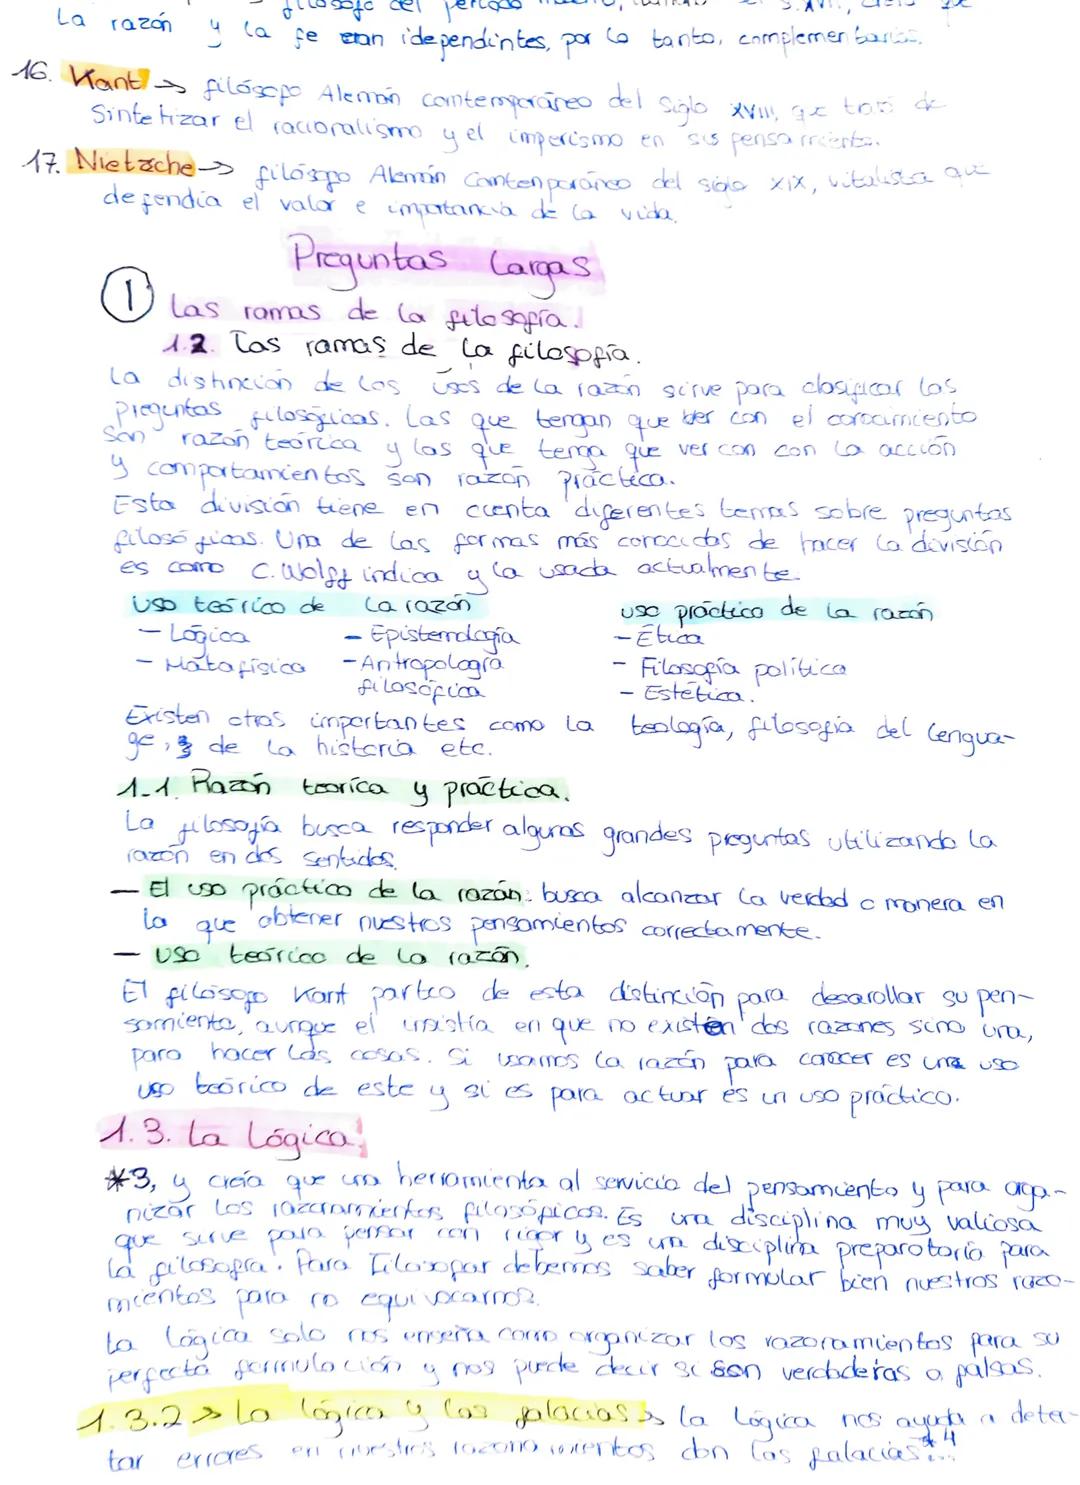 filósofo del período moderno,
La razón y la fe eran idependintes, por lo tanto, complementarias.
16. Kant → filósofo Alemán comtemporáneo del siglo XVIII, que trató de
Sintetizar el racioralismo y el imperismo en sus pensamiento.
17. Nietzsche → filósofo Alemán Contenporáneo del siglo XIX, vitalista que
defendía el valor e importancia de la vida.
Preguntas Largas
1 Las ramas de la filosofía.
1.2. Las ramas de la filosofía.
La distinción de los usos de la razón sirve para clasificar las
preguntas filosóficas. Las que tengan que ver con el conocimiento
son razón teórica y las que tenga que ver con con la acción
y comportamientos son razón práctica.
Esta división tiene en cuenta diferentes temas sobre preguntas
filosóficas. Una de las formas más conocidas de hacer la división
es como C. Wolff indica y la usada actualmente.
uso teórico de la razón uso práctico de la razón
- Lógica - Epistemología - Ética
- Matafísica - Antropología - Filosofía política
filosófica - Estética.
Existen otras importantes como la teología, filosofía del lengua-
ge, de la historia etc.
1.1. Razón teoríca y práctica.
La filosofía busca responder algunas grandes preguntas utilizando la
razón en dos sentidos.
- El uso práctico de la razón: busca alcanzar la verdad o manera en
la que obtener nuestros pensamientos correctamente.
- Uso teórico de la razón.
El filósofo Kant partió de esta distinción para desarollar su pen-
samiento, aunque el insistía en que no existen dos razones sino una,
para hacer las cosas. Si usamos la razón para conocer es una uso
uso teórico de este y si es para actuar es un uso práctico.
1.3. La Lógica.
*3, y creía que una herramienta al servicio del pensamiento y para orga-
nizar los razonamientos filosóficos. Es una disciplina muy valiosa
que sirve para pensar con rigor y es una disciplina preparatoria para
la filosofía. Para Filosofar debemos saber formular bien nuestros razo-
mientos para no equivocarnos.
La lógica solo nos enseña como organizar los razonamientos para su
perfecta formulación y nos puede decir si son verdaderas o falsas.
1.3.2 → La lógica y las falacias → la lógica nos ayuda a detec-
tar errores en nuestros razonamientos con las falacias *4...